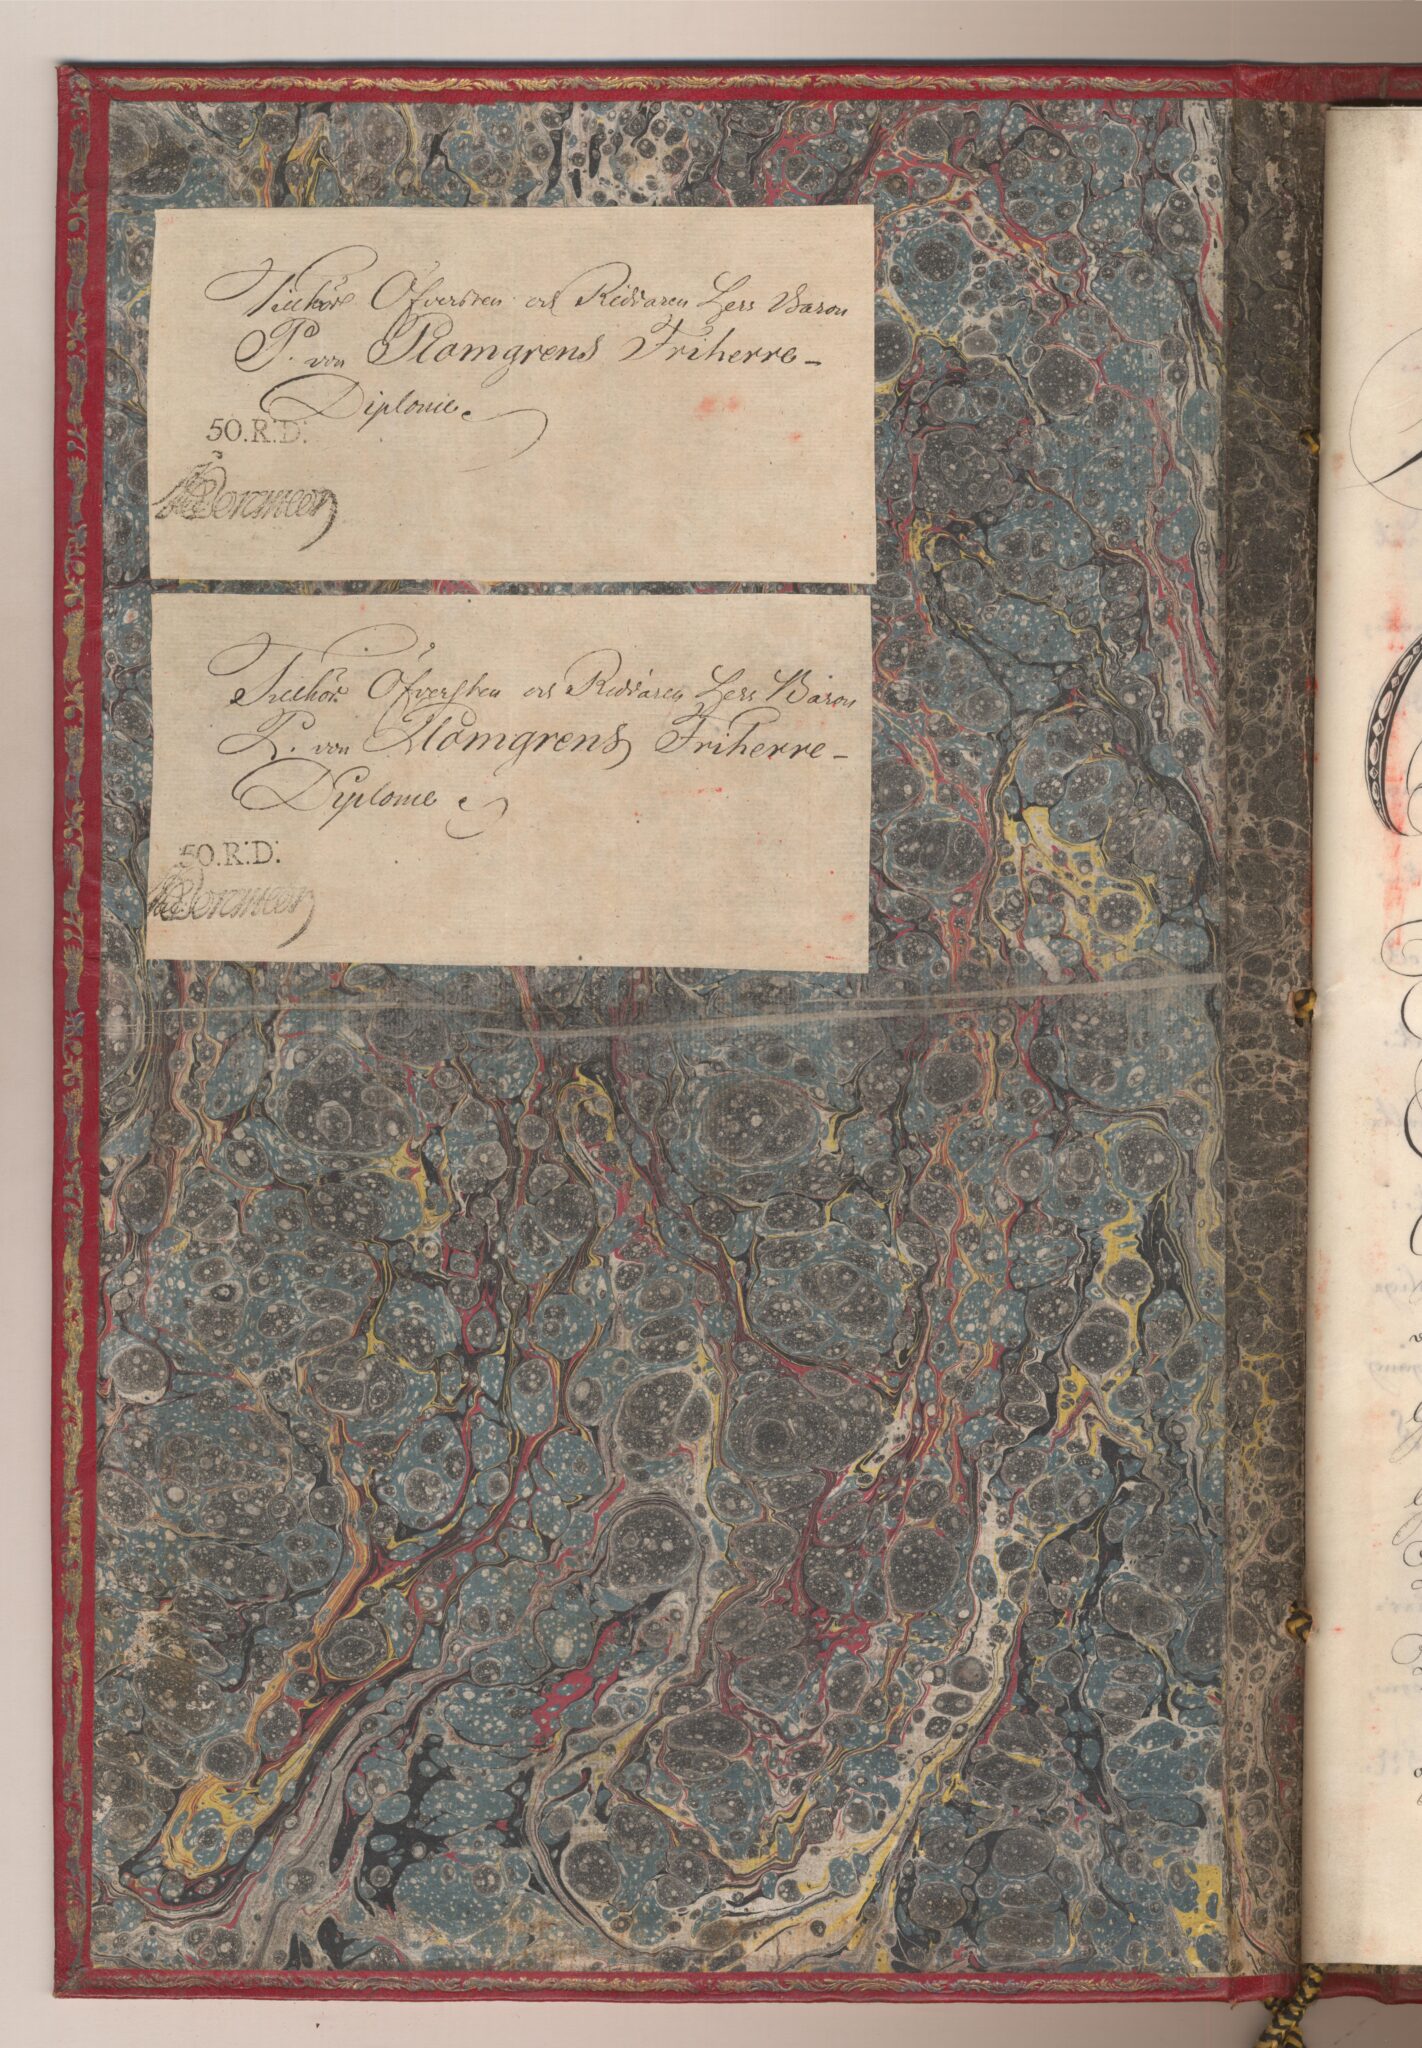 Tillhör Öfversten och Riddaren Herr Baron
P. von Plomgrens Friherre-
Diplome
50.R:D:
Tillhör Öfversten och Riddaren Herr Baron
P. von Plomgrens Friherre-
Diplome
50.R:D: